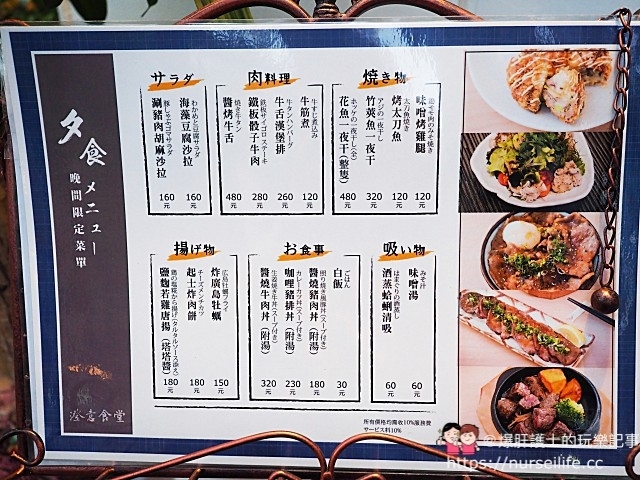 夕食メニュー
晚間限定菜單
澄意食堂
サラダ
わかめと豆腐サラダ
海藻豆腐沙拉
160元
豚しゃぶゴマサラダ
涮豬肉胡麻沙拉
160元
肉料理
牛すじ煮込み
牛筋煮
120元
牛タンハンバーグ
牛舌漢堡排
260元
鉄板サイコロステーキ
鐵板骰子牛肉
280元
焼き牛タン
醬烤牛舌
480元
焼き物
味噌烤雞腿
120元
太刀魚焼き
烤太刀魚
120元
アジの一夜干し
竹莢魚一夜干
320元
ホッケの一夜干し(全)
花魚一夜干(整隻)
480元
揚げ物
広島牡蠣フライ
炸廣島牡蠣
150元
チーズメンチカツ
起士炸肉餅
180元
鶏の塩糀から揚げ(タルタルソース添え)
鹽麴若雞唐揚(塔塔醬)
180元
お食事
ごはん
白飯
30元
照り焼き風豚丼(スープ付き)
醬燒豬肉丼(附湯)
180元
カレーカツ丼(スープ付き)
咖哩豬排丼(附湯)
230元
生姜焼き牛丼(スープ付き)
醬燒牛肉丼(附湯)
320元
吸い物
みそ汁
味噌湯
60元
はまぐりの酒蒸し
酒蒸蛤蜊清吸
60元
所有價格均需收10%服務費
サービス料10%
@爆肝護士的玩樂記事
https://nurseilife.cc